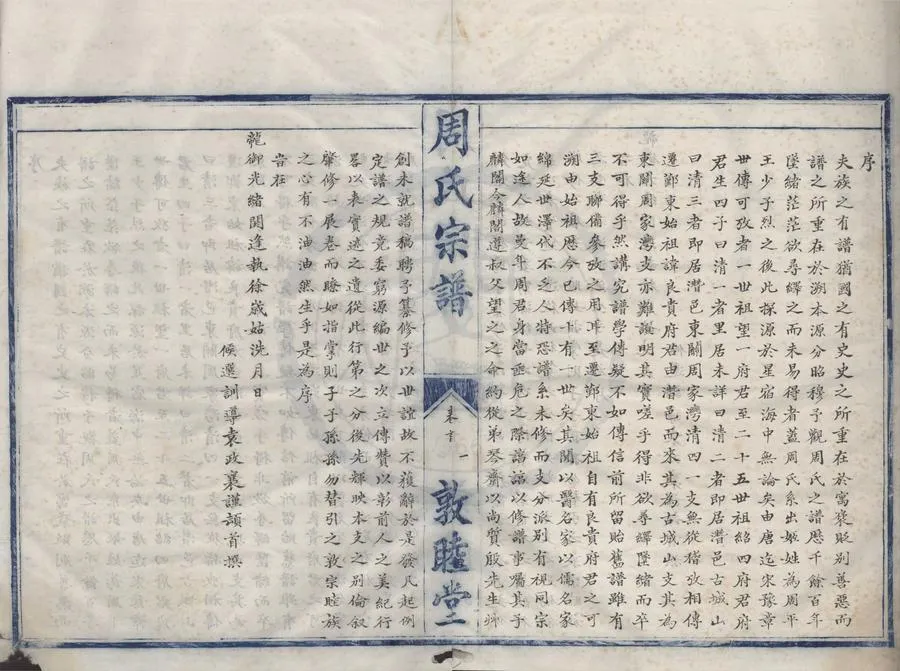 序
夫族之有譜猶國之有史史之所重在於寓褒貶別善惡而
譜之所重在於溯本源分昭穆予觀周氏之譜歷千餘百年
墜緒茫茫欲尋繹之而未易得者蓋周氏系出姬姓為周平
王少子烈之後此探源於星宿海中無論矣由唐迄宋豫章
世傳可攷者一世祖望一府君至二十五世祖紹四府君府
君生四子曰清一者里居未詳曰清二者即居潛邑古城山
曰清三者即居潛邑東關周家灣清四一支無從稽攷相傳
遷鄞東始祖諱良貴府君由潛邑而來其為古城山支其為
東關周家灣支亦難誕明其實嗟乎得非欲尋繹墜緒而卒
不可得乎然講究譜學傳疑不如傳信前所留貽舊譜雖有
三支聯備參攷之用耳至遷鄞東始祖自有良貴府君之可
溯由始祖歷今已傳十有一世矣其間以醫名家以儒名家
綿延世澤代不乏人特恐譜系未修而支分派別有視同宗
如途人故曼年周君身當亟危之際諄諄以修譜事囑其子
麟閣今麟閣遵叔父望之之命約從弟琴齋以尚質殷先生
創未就譜稿聘予纂修予以世誼故不獲辭於是發凡起例
定譜之規竟委窮源編世之次立傳贊以彰前人之美紀行
畧以表實迹之遺從此行第之分後先輝映本支之別倫敘
肇修一展卷而瞭如指掌則子子孫孫勿替引之敦宗睦族
之心有不油油然生乎是為序
旹在
龍御光緒閼逢執徐歲姑洗月日
候選訓導袁政襄謹頴首撰
周氏宗譜
一
敦睦堂